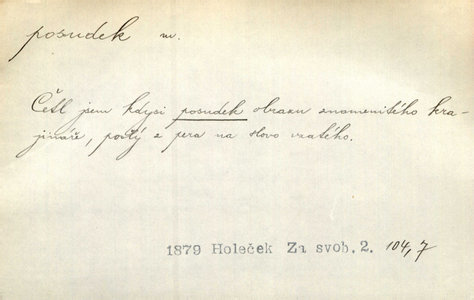 posudek m.
Četl jsem kdysi posudek obrazu znamenitého kra-
jináře, pošlý z pera na slovo vzatého.
1879 Holeček Za svob. 2. 104,7